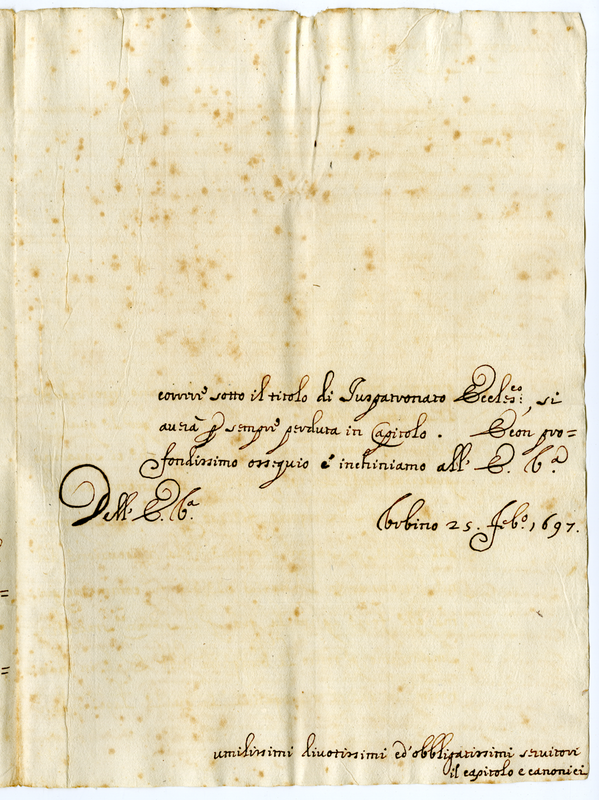 correre sotto il titolo di Juspatronato Eccles:co, si
averà p sempre perduta in Capitolo. E con pro=
fondissimo ossequio c'inchiniamo all' E. V.a
Dell' E. V.a
Urbino 25. Feb.o 1697.
umilissimi divotissimi ed obbligatissimi servitori
il capitolo e canonici